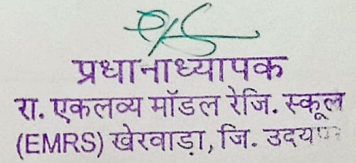 प्रधानाध्यापक
रा. एकलव्य मॉडल रेजि. स्कूल
(EMRS) खेरवाड़ा, जि.